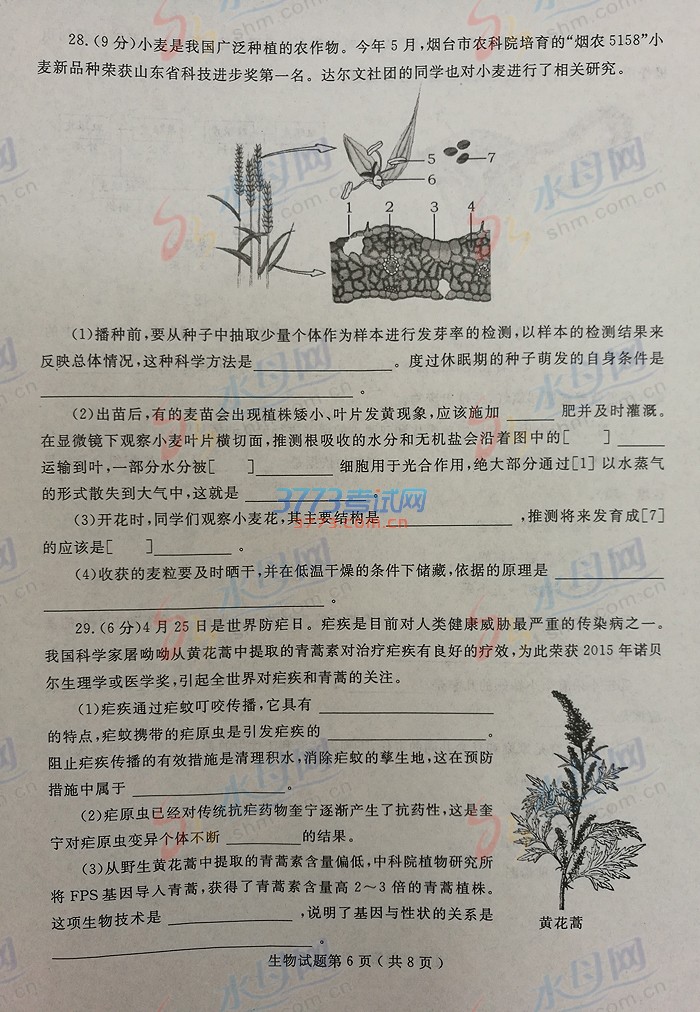 28.(9分)小麦是我国广泛种植的农作物。今年5月,烟台市农科院培育的“烟农5158”小
麦新品种荣获山东省科技进步奖第一名。达尔文社团的同学也对小麦进行了相关研究。
5
6
7
1 2 3 4
(1)播种前,要从种子中抽取少量个体作为样本进行发芽率的检测,以样本的检测结果来
反映总体情况,这种科学方法是______________。度过休眠期的种子萌发的自身条件是
______________________________。
(2)出苗后,有的麦苗会出现植株矮小、叶片发黄现象,应该施加______肥并及时灌溉。
在显微镜下观察小麦叶片横切面,推测根吸收的水分和无机盐会沿着图中的[ ]______
运输到叶,一部分水分被[ ]________细胞用于光合作用,绝大部分通过[1]以水蒸气
的形式散失到大气中,这就是____________。
(3)开花时,同学们观察小麦花,其主要结构是____________,推测将来发育成[7]
的应该是[ ]________。
(4)收获的麦粒要及时晒干,并在低温干燥的条件下储藏,依据的原理是____________
______________________________。
29.(6分)4月25日是世界防疟日。疟疾是目前对人类健康威胁最严重的传染病之一。
我国科学家屠呦呦从黄花蒿中提取的青蒿素对治疗疟疾有良好的疗效,为此荣获2015年诺贝
尔生理学或医学奖,引起全世界对疟疾和青蒿的关注。
(1)疟疾通过疟蚊叮咬传播,它具有__________________
的特点,疟蚊携带的疟原虫是引发疟疾的________________。
阻止疟疾传播的有效措施是清理积水,消除疟蚊的孳生地,这在预防
措施中属于________________。
(2)疟原虫已经对传统抗疟药物奎宁逐渐产生了抗药性,这是奎
宁对疟原虫变异个体不断________的结果。
(3)从野生黄花蒿中提取的青蒿素含量偏低,中科院植物研究所
将FPS基因导人青蒿,获得了青蒿素含量高2~3倍的青蒿植株。
这项生物技术是____________,说明了基因与性状的关系是
______________________________。
黄花蒿
生物试题第6页(共8页)
3773考试网
3773.com.cn
水母网
shm.com.cn